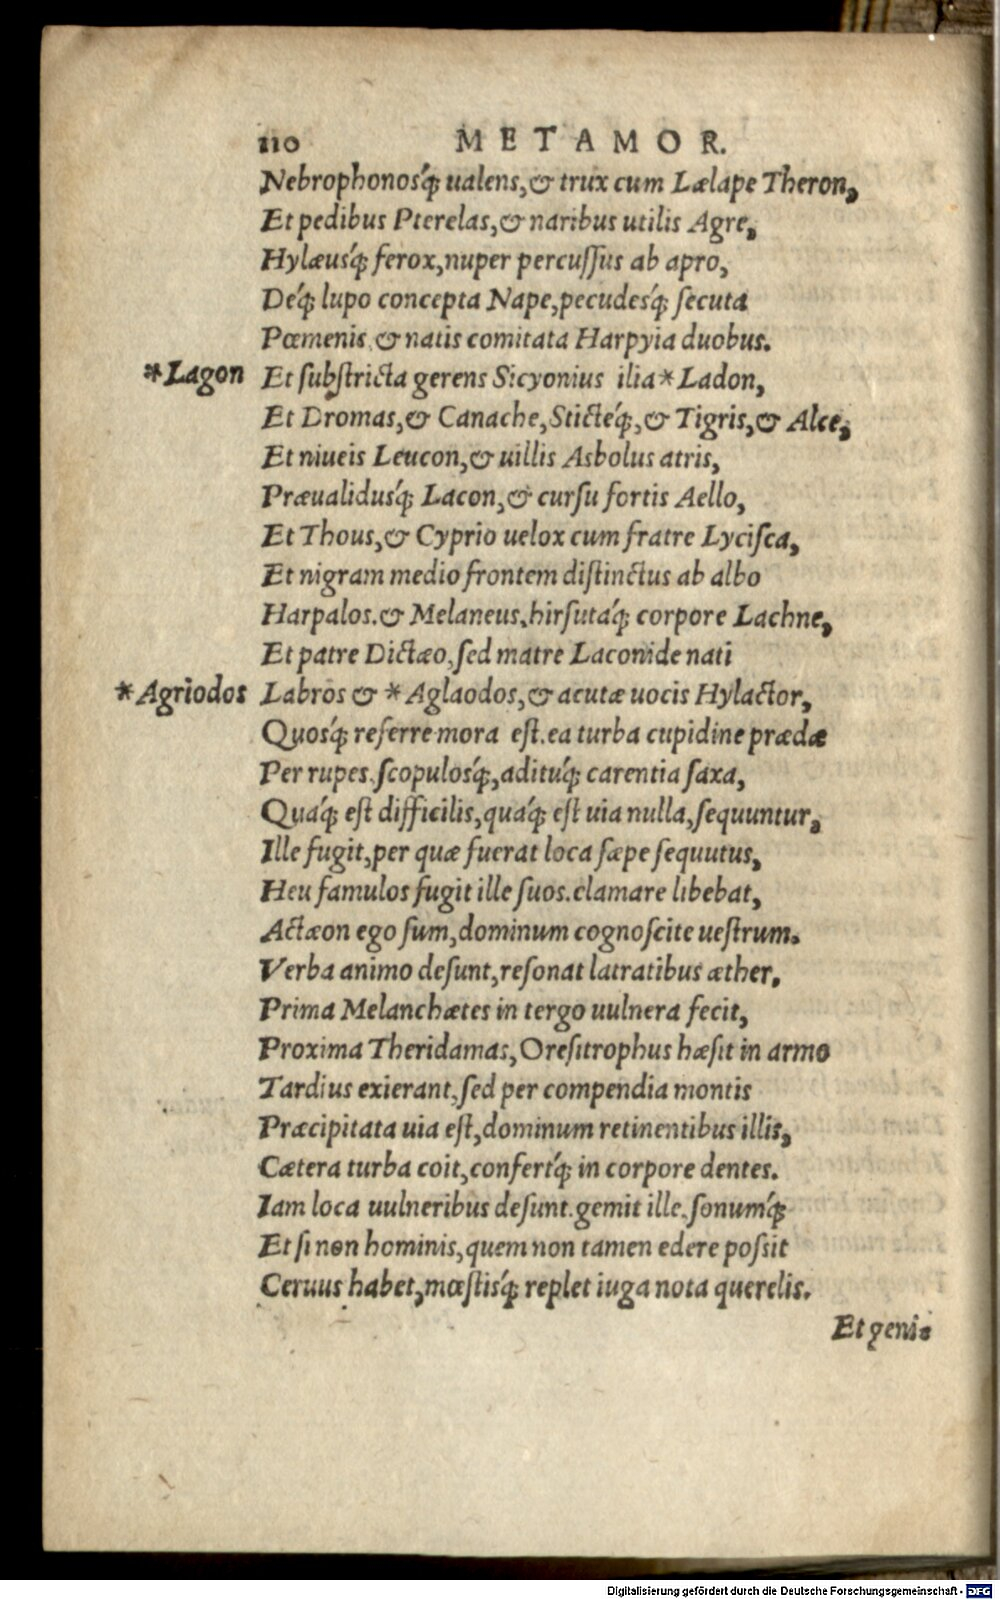 110 METAMOR.
Nebrophonosq́; ualens, & trux cum Lælape Theron,
Et pedibus Pterelas, & naribus utilis Agre,
Hylæusq́; ferox, nuper percuſſus ab apro,
Deq́; lupo concepta Nape, pecudesq́; ſecuta
Pœmenis, & natis comitata Harpyia duobus.
*Lagon Et ſubſtricta gerens Sicyonius ilia * Ladon,
Et Dromas, & Canache, Sticteq́;, & Tigris, & Alce,
Et niueis Leucon, & uillis Asbolus atris,
Præualidusq́; Lacon, & curſu fortis Aello,
Et Thous, & Cyprio uelox cum fratre Lyciſca,
Et nigram medio frontem diſtinctus ab albo
Harpalos. & Melaneus, hirſutaq́; corpore Lachne,
Et patre Dictæo, ſed matre Laconide nati
*Agriodos Labros & * Aglaodos, & acutæ uocis Hylactor,
Quosq́; referre mora est. ea turba cupidine prædæ
Per rupes. ſcopulosq́;, adituq́; carentia ſaxa,
Quaq́; eſt difficilis, quaq́; eſt uia nulla, ſequuntur,
Ille fugit, per quæ fuerat loca ſæpe ſequutus,
Heu famulos fugit ille ſuos. clamare libebat,
Actæon ego ſum, dominum cognoſcite ueſtrum.
Verba animo deſunt, reſonat latratibus æther.
Prima Melanchætes in tergo uulnera fecit,
Proxima Theridamas, Oreſitrophus hæſit in armo
Tardius exierant, ſed per compendia montis
Præcipitata uia eſt, dominum retinentibus illis,
Cætera turba coit, confertq́; in corpore dentes.
Iam loca uulneribus deſunt. gemit ille. ſonumq́;
Et ſi non hominis, quem non tamen edere poſsit
Ceruus habet, mœſtisq́; replet iuga nota querelis.
Et geni-
Digitalisierung gefördert durch die Deutsche Forschungsgemeinschaft - DFG